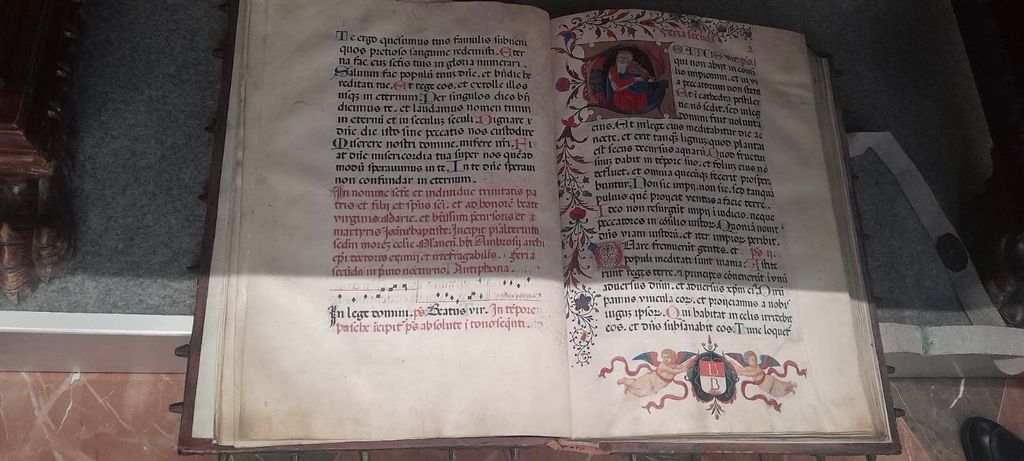 Te ergo quesumus tuis famulis subueni
quos pretioso sanguine redemisti. Eter
na fac cuȝ sctis tuis in gloria numerari.
Saluum fac populū tuuȝ dn̄e. et bn̄dic he
reditati tue. Et rege eos. et extolle illos
usqȝ in eternum. Per singulos dies bn̄
dicimus te. et laudamus nomen tuum
in eternū et in seculuȝ seculi. Dignare
dn̄e die isto sine peccatis nos custodire
Miserere nostri domine. misere nr̄i. Fi
at dn̄e misericordia tua super nos quēad
modū sperauimus in te. In te dn̄e speraui
non confundar in eternum.
In nomine scte et indiuidue trinitatis pa
tris et filij et spūs sci. et ad honorē beate
virginis Marie. et
martyris Joānis baptiste. Incipit psalterium
scdm morēȝ eclie Mlaneñ. bti Ambrosij archi
epi doctoris eximij et irrefragabilis. Feria
secūda in pimo nocturno. Antiphona.
In lege domini. ps. Beatus vir. In tēpore
pasche icipit ps absolute
Feria secūda 2
EATUS vir
qui non abijt in consi
lio impiorum. et in vi
a peccatorum non stetit
Et in cathedra pestilen
tie nō sedit. Sed in lege
domini fuit volunta
eius. Et in lege eius meditabitur die ac
nocte. Et erit tanqȝ lignuȝ quod plantatū
est secus decursus aquarū. Quod fructū
suuȝ dabit in tēpore suo. et foliuȝ eius nō
defluet. et omnia quecūqȝ fecerit prospera
buntur. Non sic impij. non sic. sed tanquȝ
puluis quē proijcit ventus a facie terre.
Ideo non resurgūt impij i iudicio. neque
peccatores in cōsilio iustoȝ. Quoniā nouit
dn̄s viam iustorū. et iter impioȝ peribit.
Quare fremuerūt gentes. et ps. ij
populi meditati sunt inania. Astite
runt reges terre. et principes cōuenerūt i vnū
aduersus dnm. et aduersus xpm ei. Diru
pamus vincula eoȝ. et proijciamus a nobis
iugum ipsoȝ. Qui habitat in celis irridebit
eos. et dn̄s subsanabit eos. Tunc loquet